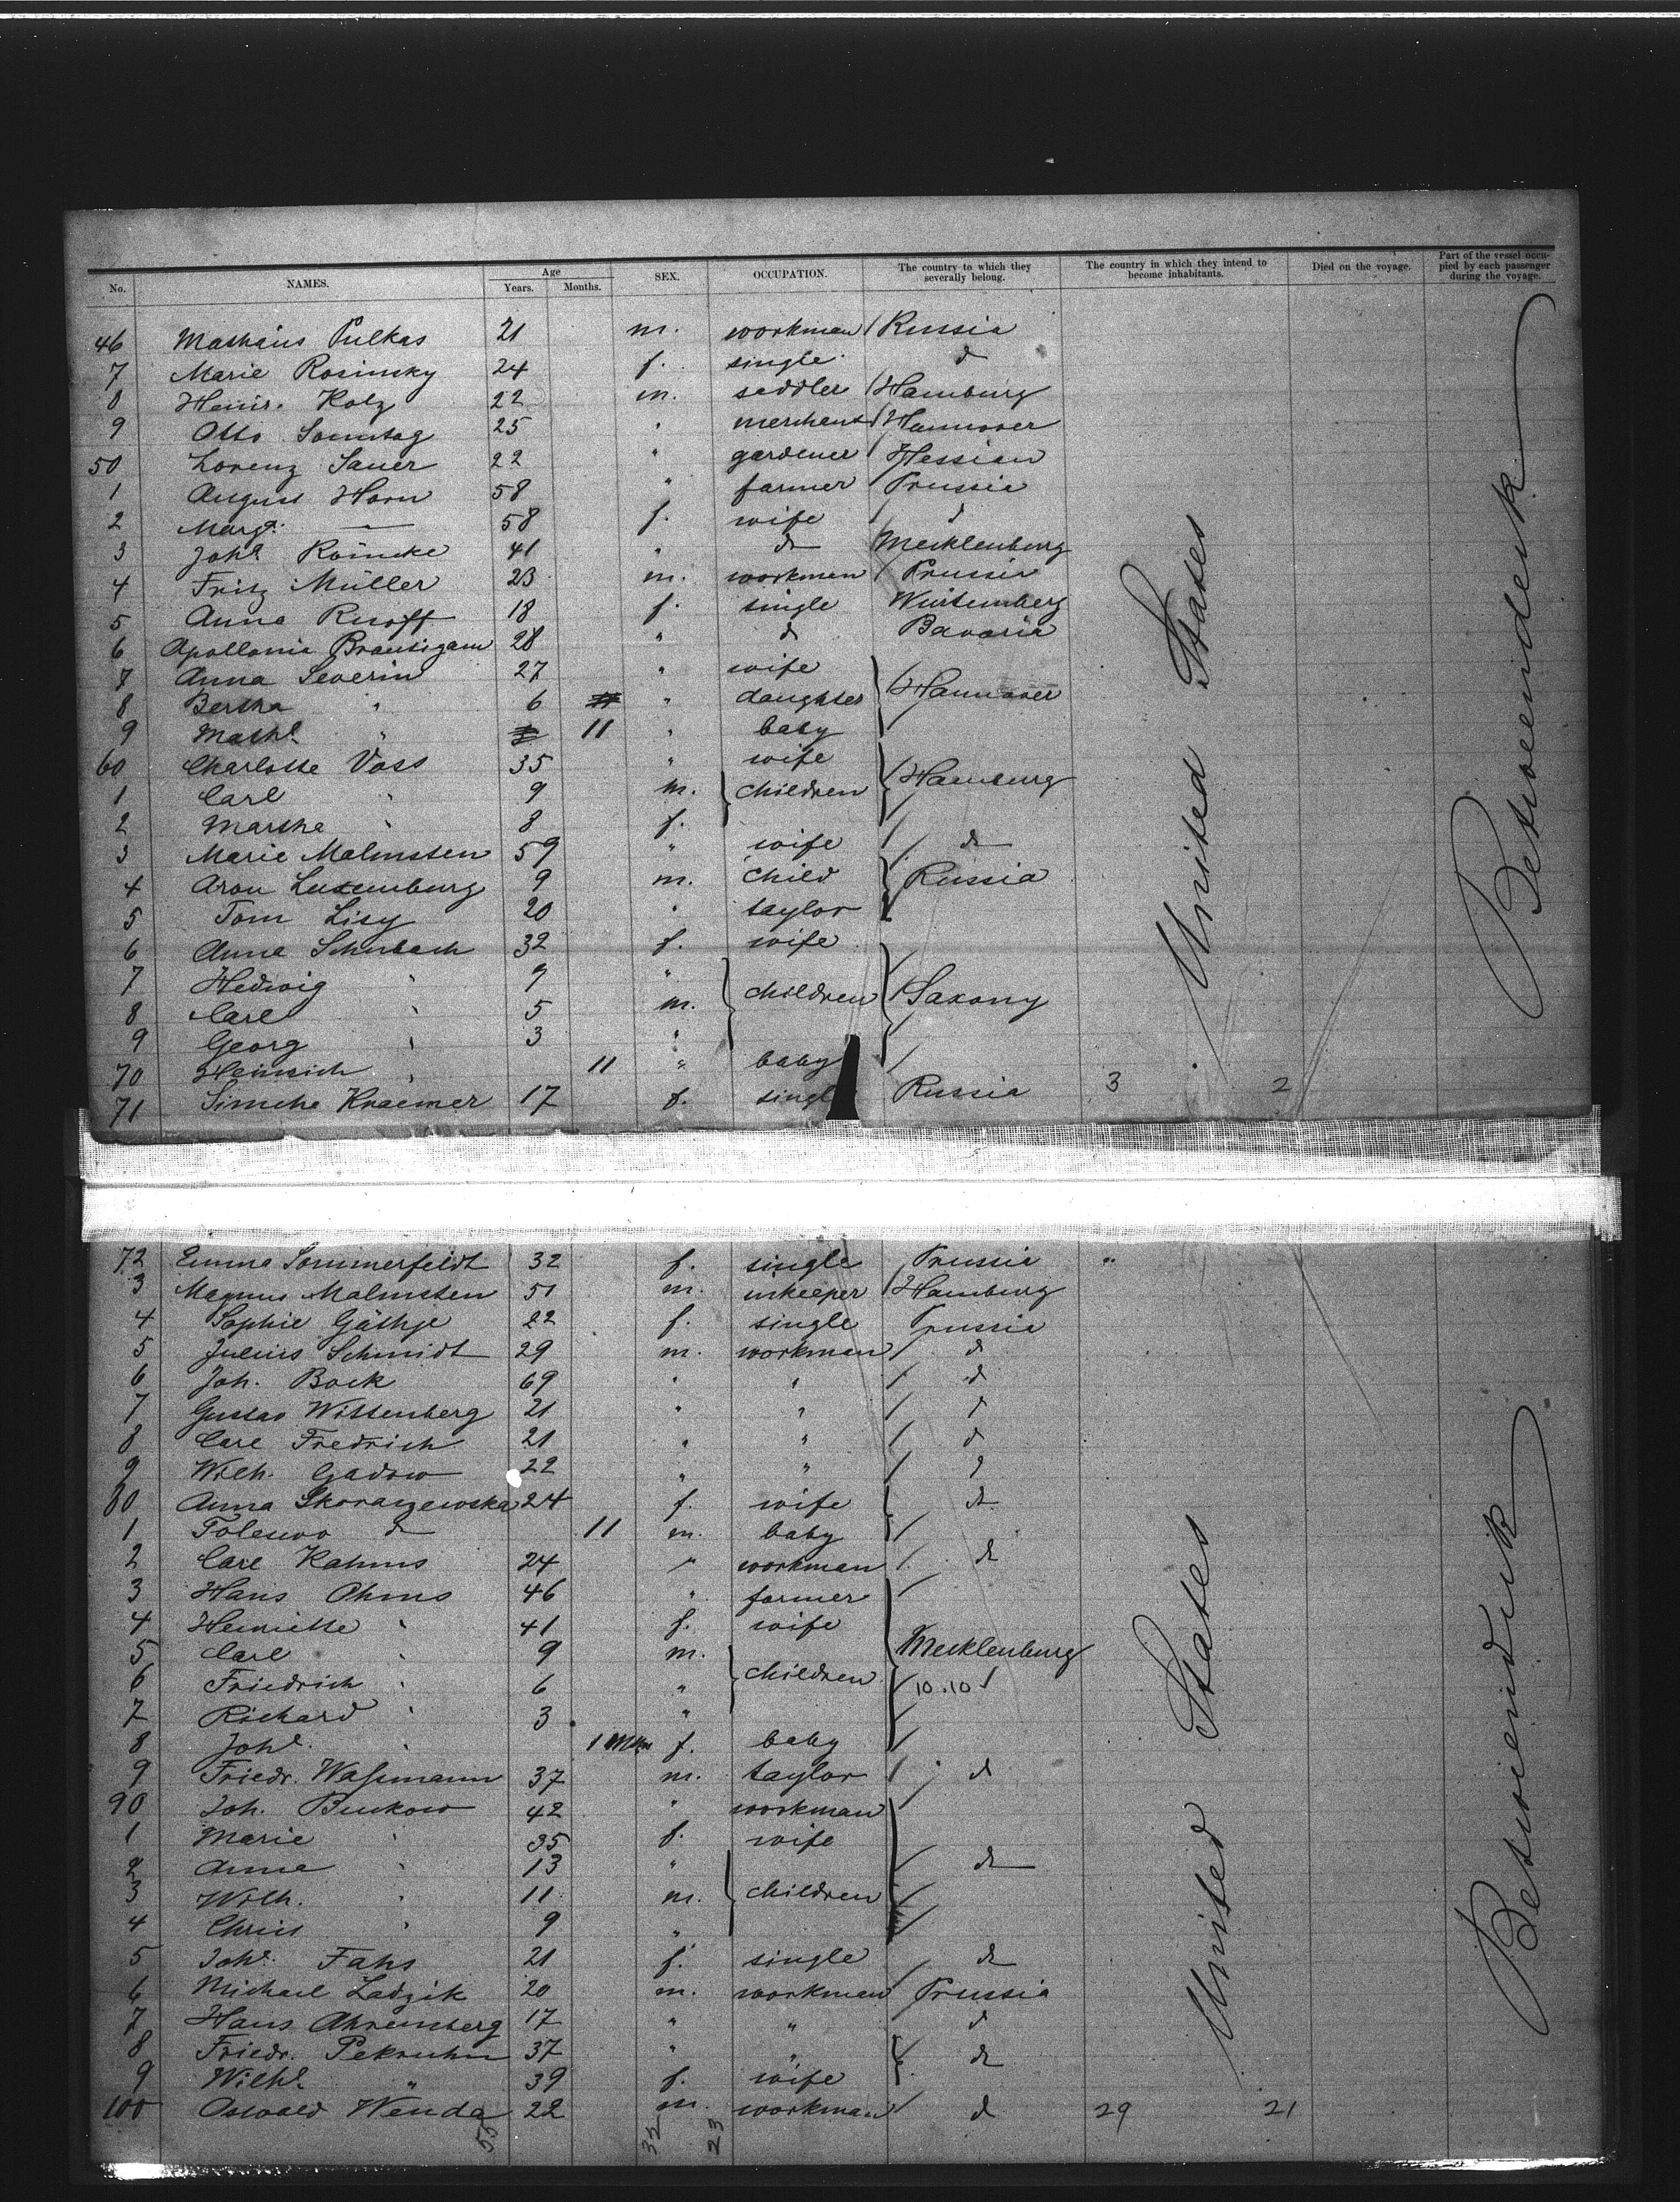 No. NAMES. Age Years. Months. SEX. OCCUPATION. The country to which they severally belong. The country in which they intend to become inhabitants. Died on the voyage. Part of the vessel occupied by each passenger during the voyage.
46 Mathäus Pulkas 21 m. workman Russia
7 Marie Rosinsky 24 f. single d
8 Heinr. Kolz 22 m. saddler Hamburg
9 Otto Sonntag 25 " merchant Hannover
50 Lorenz Sauer 22 " gardener Hessian
1 August Horn 58 " farmer Prussia
2 Margt. — 58 f. wife d
3 Johe. Reincke 41 " do Mecklenburg
4 Fritz Müller 23 m. workman Prussia
5 Anna Ruoff 18 f. single Würtemberg
6 Apollonia Brautigam 28 " d Bavaria
7 Anna Severin 27 " wife
8 Bertha " 6 " daughter Hannover
9 Mathe. " 11 " baby
60 Charlotte Voss 35 " wife
1 Carl " 9 m. children Hamburg
2 Martha " 8 f.
3 Marie Malmsten 59 " wife do
4 Aron Luxemburg 9 m. child Russia
5 Tom Lisy 20 " taylor
6 Anna Schubach 32 f. wife
7 Hedwig " 9 " children Saxony
8 Carl " 5 m.
9 Georg " 3 "
70 Heinrich " 11 " baby
71 Simche Kraemer 17 f. single Russia 3 2
United States
Betweendeck
72 Emma Sommerfeldt 32 f. single Prussia "
3 Magnus Malmsten 51 m. inkeeper Hamburg
4 Sophie Gäthje 22 f. single Prussia
5 Julius Schmidt 29 m. workman d
6 Joh. Bock 69 " " d
7 Gustav Wittenberg 21 " " d
8 Carl Fredrich 21 " " d
9 Wilh. Gadow 22 " " d
80 Anna Skoraczewska 24 f. wife d
1 do 11 m. baby
2 Carl Kahms 24 " workman do
3 Hans Ohms 46 " farmer
4 Henriette " 41 f. wife
5 Carl " 9 m. children Mecklenburg
6 Friedrich " 6 " 10.10
7 Richard " 3 "
8 Johe. " 1 f. baby
9 Friedr. Waßmann 37 m. taylor d
90 Joh. Buckow 42 " workman
1 Marie " 35 f. wife
2 Anna " 13 " children do
3 Wilh. " 11 m.
4 Chris " 9 "
5 Johe. Fahs 21 f. single do
6 Michael Ladzik 20 m. workman Prussia
7 Hans Ahrensberg 17 " " d
8 Friedr. Pekruhn 37 " " do
9 Wilhe. " 39 f. wife
100 Oswald Wenda 22 m. workman d 29 21
55 32 23
United States
Betweendeck